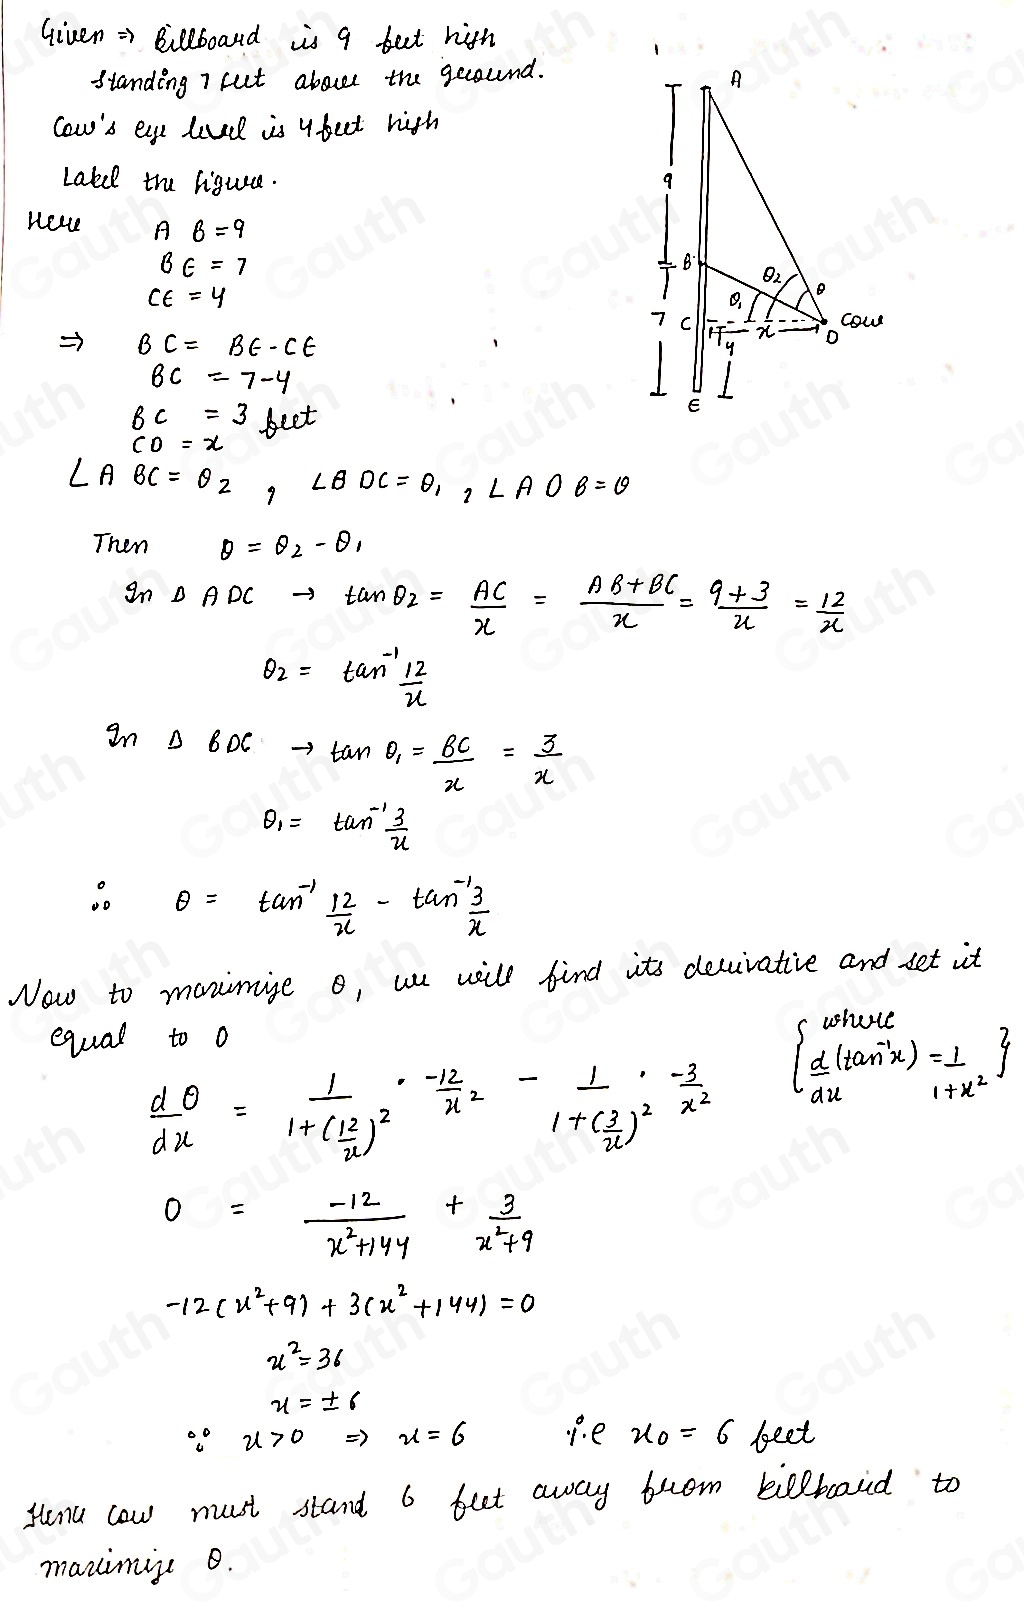 Given ⇒ Billboard is 9 feet high
standing 7 feet above the ground.
Cow's eye level is 4 feet high
Label the figure.
Here A B = 9
BE = 7
CE = 4
⇒ BC = BE - CE
BC = 7-4
BC = 3 feet
CD = x
∠ABC = θ2 , ∠BDC = θ1 , ∠ADB = θ
Then θ = θ2 - θ1
In Δ ADC → tan θ2 = AC/x = AB+BC/x = 9+3/x = 12/x
θ2 = tan⁻¹ 12/x
In Δ BDC → tan θ1 = BC/x = 3/x
θ1 = tan⁻¹ 3/x
∴ θ = tan⁻¹ 12/x - tan⁻¹ 3/x
Now to maximize θ, we will find its derivative and set it
equal to 0
dθ/dx = 1/1+(12/x)² · -12/x² - 1/1+(3/x)² · -3/x² { where d/dx (tan⁻¹x) = 1/1+x² }
0 = -12/x²+144 + 3/x²+9
-12(x²+9) + 3(x²+144) = 0
x² = 36
x = ± 6
∵ x>0 ⇒ x = 6 i.e x0 = 6 feet
Hence cow must stand 6 feet away from billboard to
maximize θ.
A
9
B
θ2
θ
θ1
7
C
x
D
Cow
4
E
Gauth